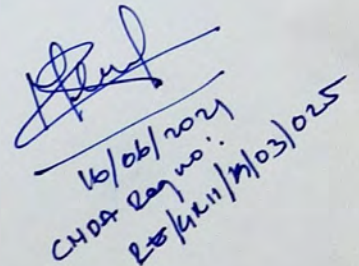 16/06/2021
CMDA Reg no:
RE/GR11/19/03/025